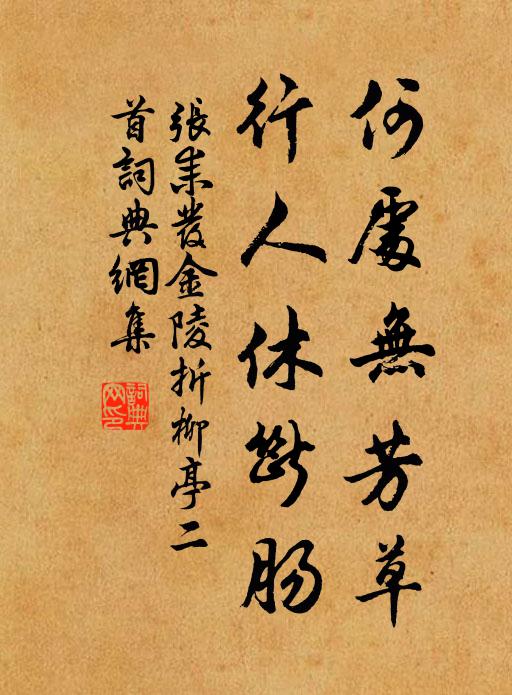 何處無芳草
行人休斷腸
張耒發金陵折柳亭二
首詞典網集
詞典
网印